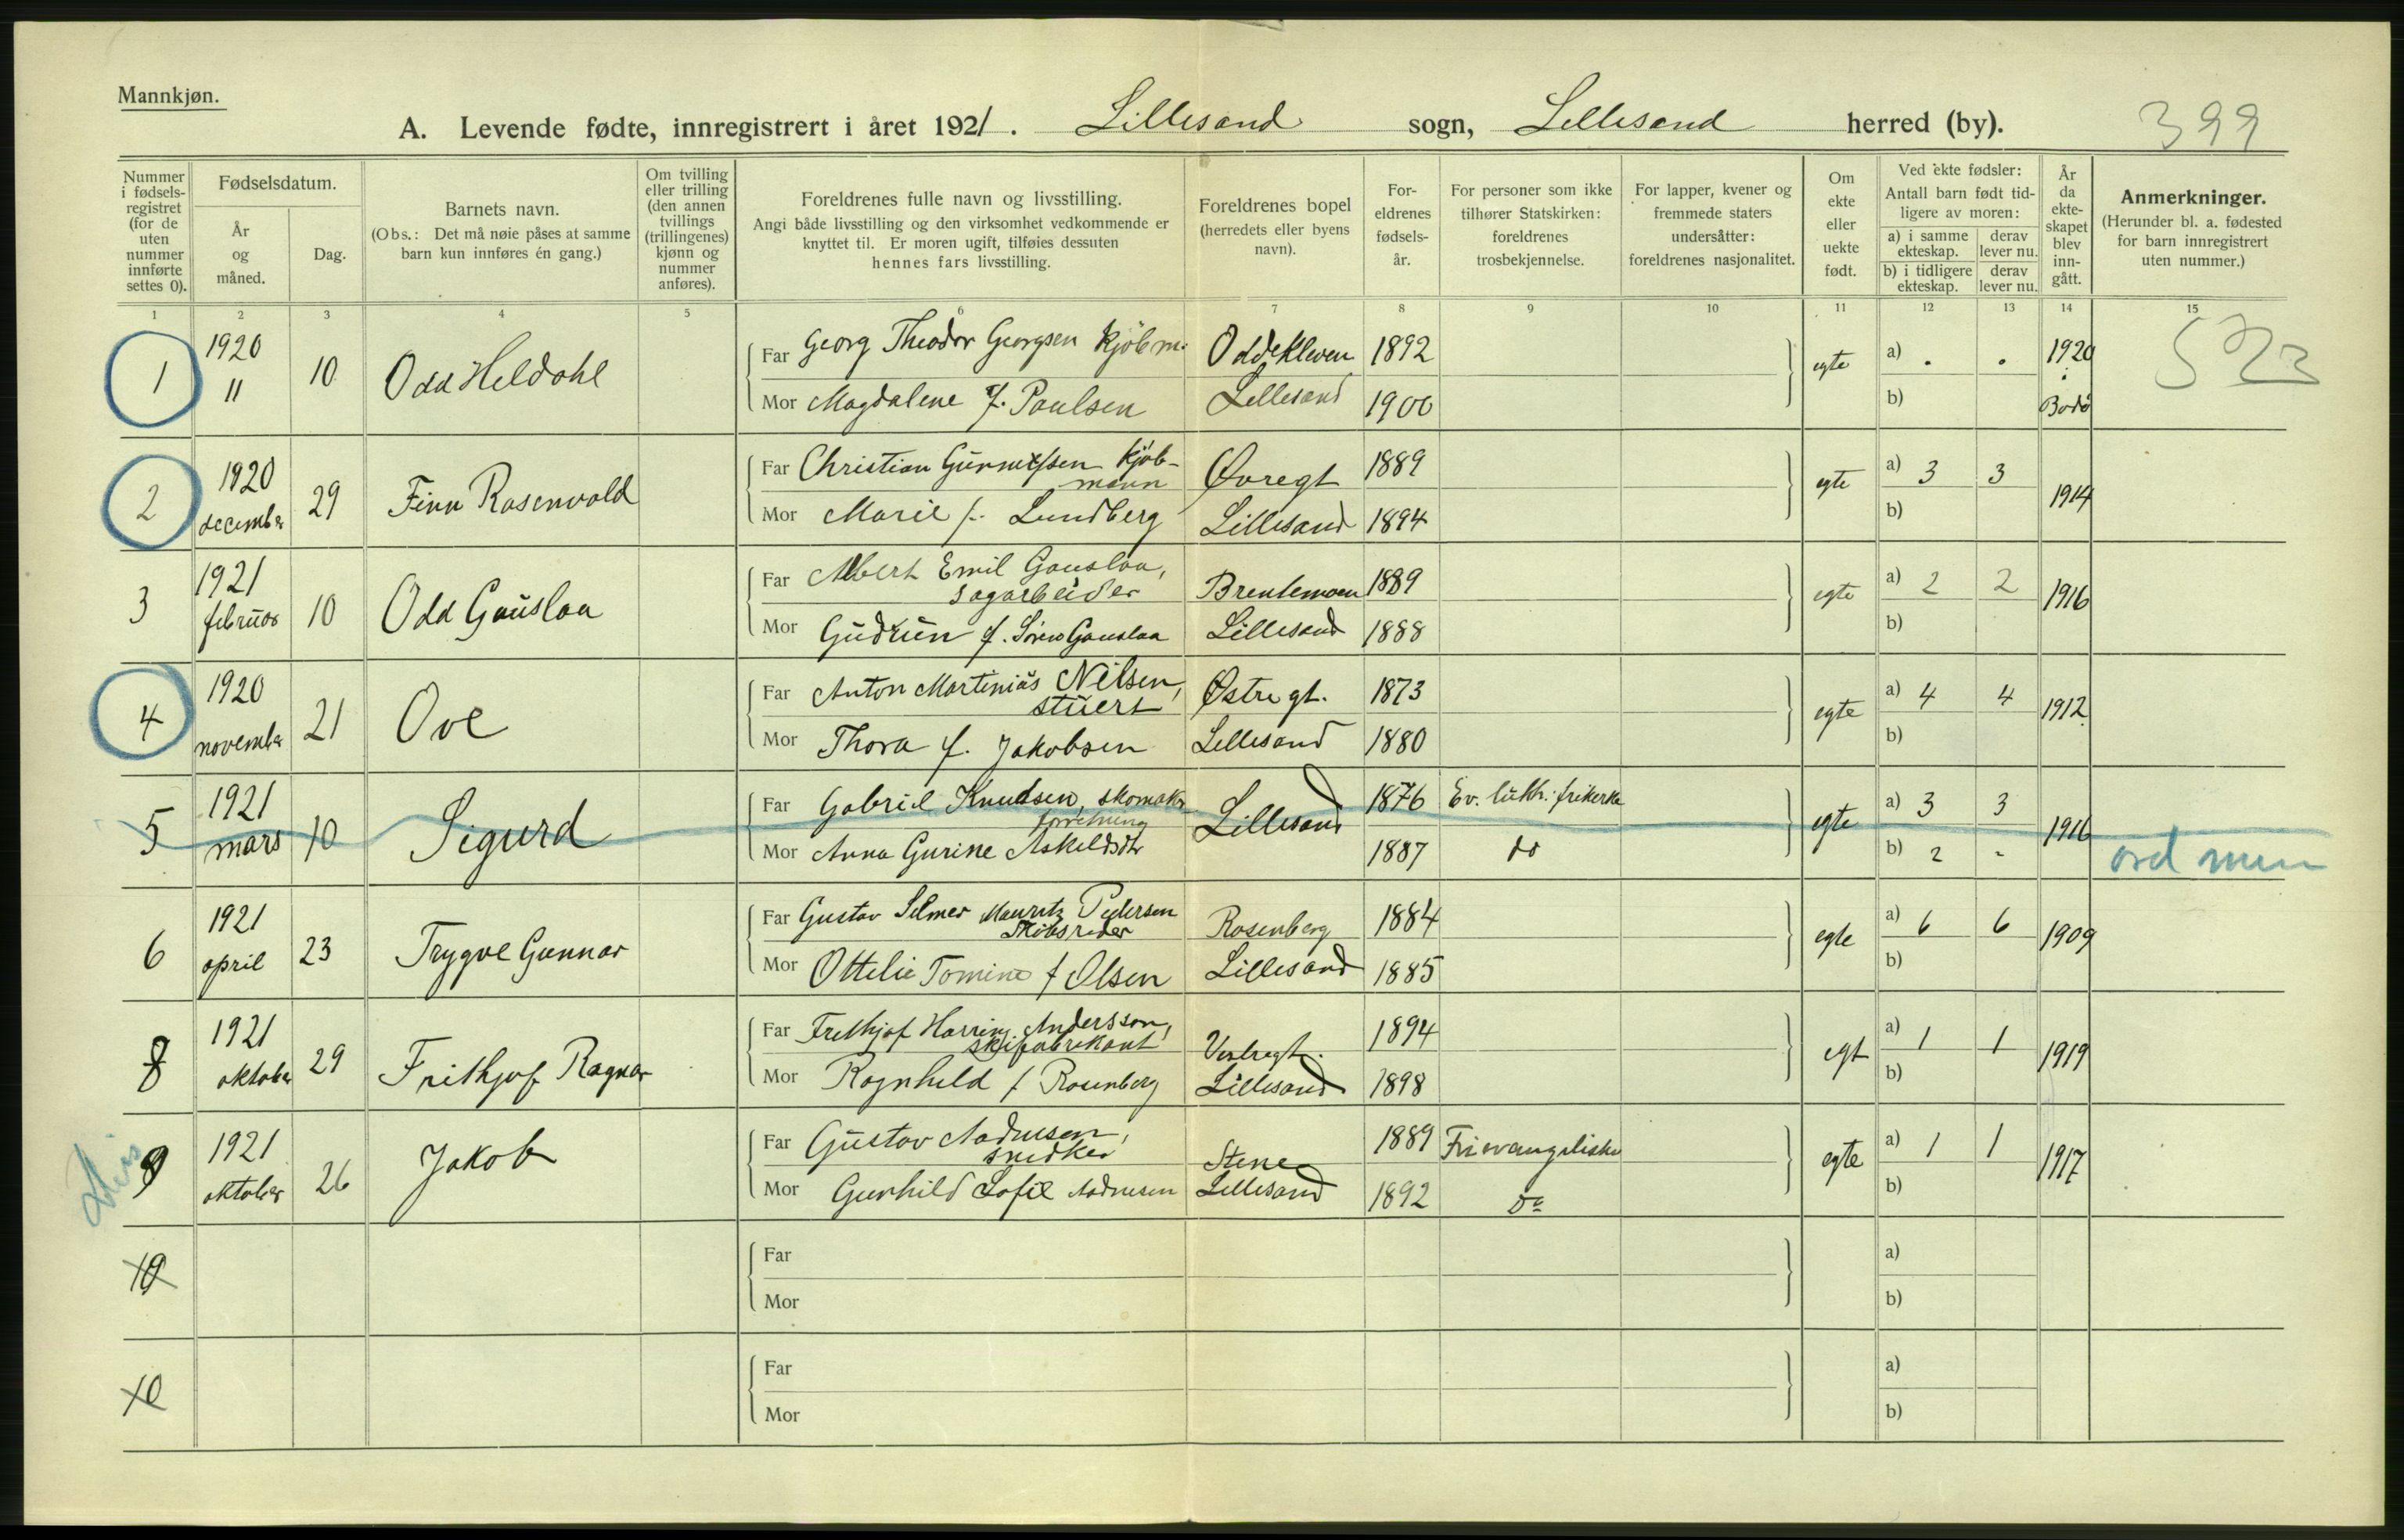 Mannkjøn.
A. Levende fødte, innregistrert i året 1921. Lillesand sogn, Lillesand herred (by). 399
Nummer i fødsels-registret (for de uten nummer innførte settes 0).
Fødselsdatum.
År og måned.
Dag.
Barnets navn.
(Obs.: Det må nøie påses at samme barn kun innføres én gang.)
Om tvilling eller trilling (den annen tvillings (trillingenes) kjønn og nummer anføres).
Foreldrenes fulle navn og livsstilling.
Angi både livsstilling og den virksomhet vedkommende er knyttet til. Er moren ugift, tilføies dessuten hennes fars livsstilling.
Foreldrenes bopel (herredets eller byens navn).
For-eldrenes fødsels-år.
For personer som ikke tilhører Statskirken: foreldrenes trosbekjennelse.
For lapper, kvener og fremmede staters undersåtter: foreldrenes nasjonalitet.
Om ekte eller uekte født.
Ved ekte fødsler:
Antall barn født tid-ligere av moren:
a) i samme ekteskap. derav lever nu.
b) i tidligere ekteskap. derav lever nu.
År da ekte-skapet blev inn-gått.
Anmerkninger.
(Herunder bl. a. fødested for barn innregistrert uten nummer.)
1 2 3 4 5 6 7 8 9 10 11 12 13 14 15
1 1920 11 10 Odd Heldahl
Far Georg Theodor Georgsen kjöbm. Oddekleven 1892 egte a) . . 1920 523
Mor Magdalene f. Paulsen Lillesand 1900 b) Bodö
2 1920 december 29 Finn Rosenvold
Far Christian kjöb-mann Øvregt 1889 egte a) 3 3 1914
Mor Marie f. Lundberg Lillesand 1894 b)
3 1921 februar 10 Odd Gauslaa
Far Albert Emil Gauslaa, sagarbeider Brentemoen 1889 egte a) 2 2 1916
Mor Gudrun f. Gauslaa Lillesand 1888 b)
4 1920 november 21 Ove
Far Anton Martinius Nilsen, stuert Østregt. 1873 egte a) 4 4 1912
Mor Thora f. Jakobsen Lillesand 1880 b)
5 1921 mars 10 Sigurd
Far Gabriel Knudsen, skomaker forretning Lillesand 1876 Ev. luth. frikerke egte a) 3 3 1916
Mor Anna Gurine Askeldsdtr 1887 do b) 2 -
6 1921 april 23 Trygve Gunnar
Far Gustav Selmer Mauritz Pedersen Skibsreder Rosenberg 1884 egte a) 6 6 1909
Mor Ottelie Tomine f Olsen Lillesand 1885 b)
8 1921 oktober 29 Frithjof Ragnar
Far Frithjof Andersson, skifabrikant Vestregt. 1894 egt a) 1 1 1919
Mor Ragnhild f Rosenberg Lillesand 1898 b)
9 1921 oktober 26 Jakob
Far Gustav Aadnesen, snedker Stene 1889 Frievangeliske egte a) 1 1 1917
Mor Gunhild Sofie Aadnesen Lillesand 1892 Do b)
10
Far a)
Mor b)
10
Far a)
Mor b)